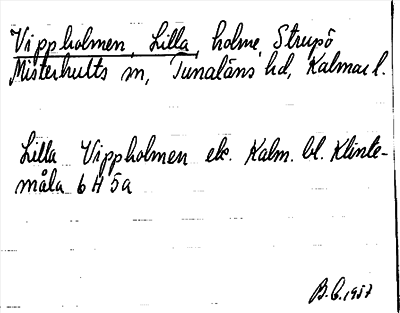 Vippholmen, Lilla, holme, Strupö
Misterhults sn, Tunaläns hd, Kalmar l.
Lilla Vippholmen ek. Kalm. bl. Klinte-
måla 6H 5a
B.C. 1957